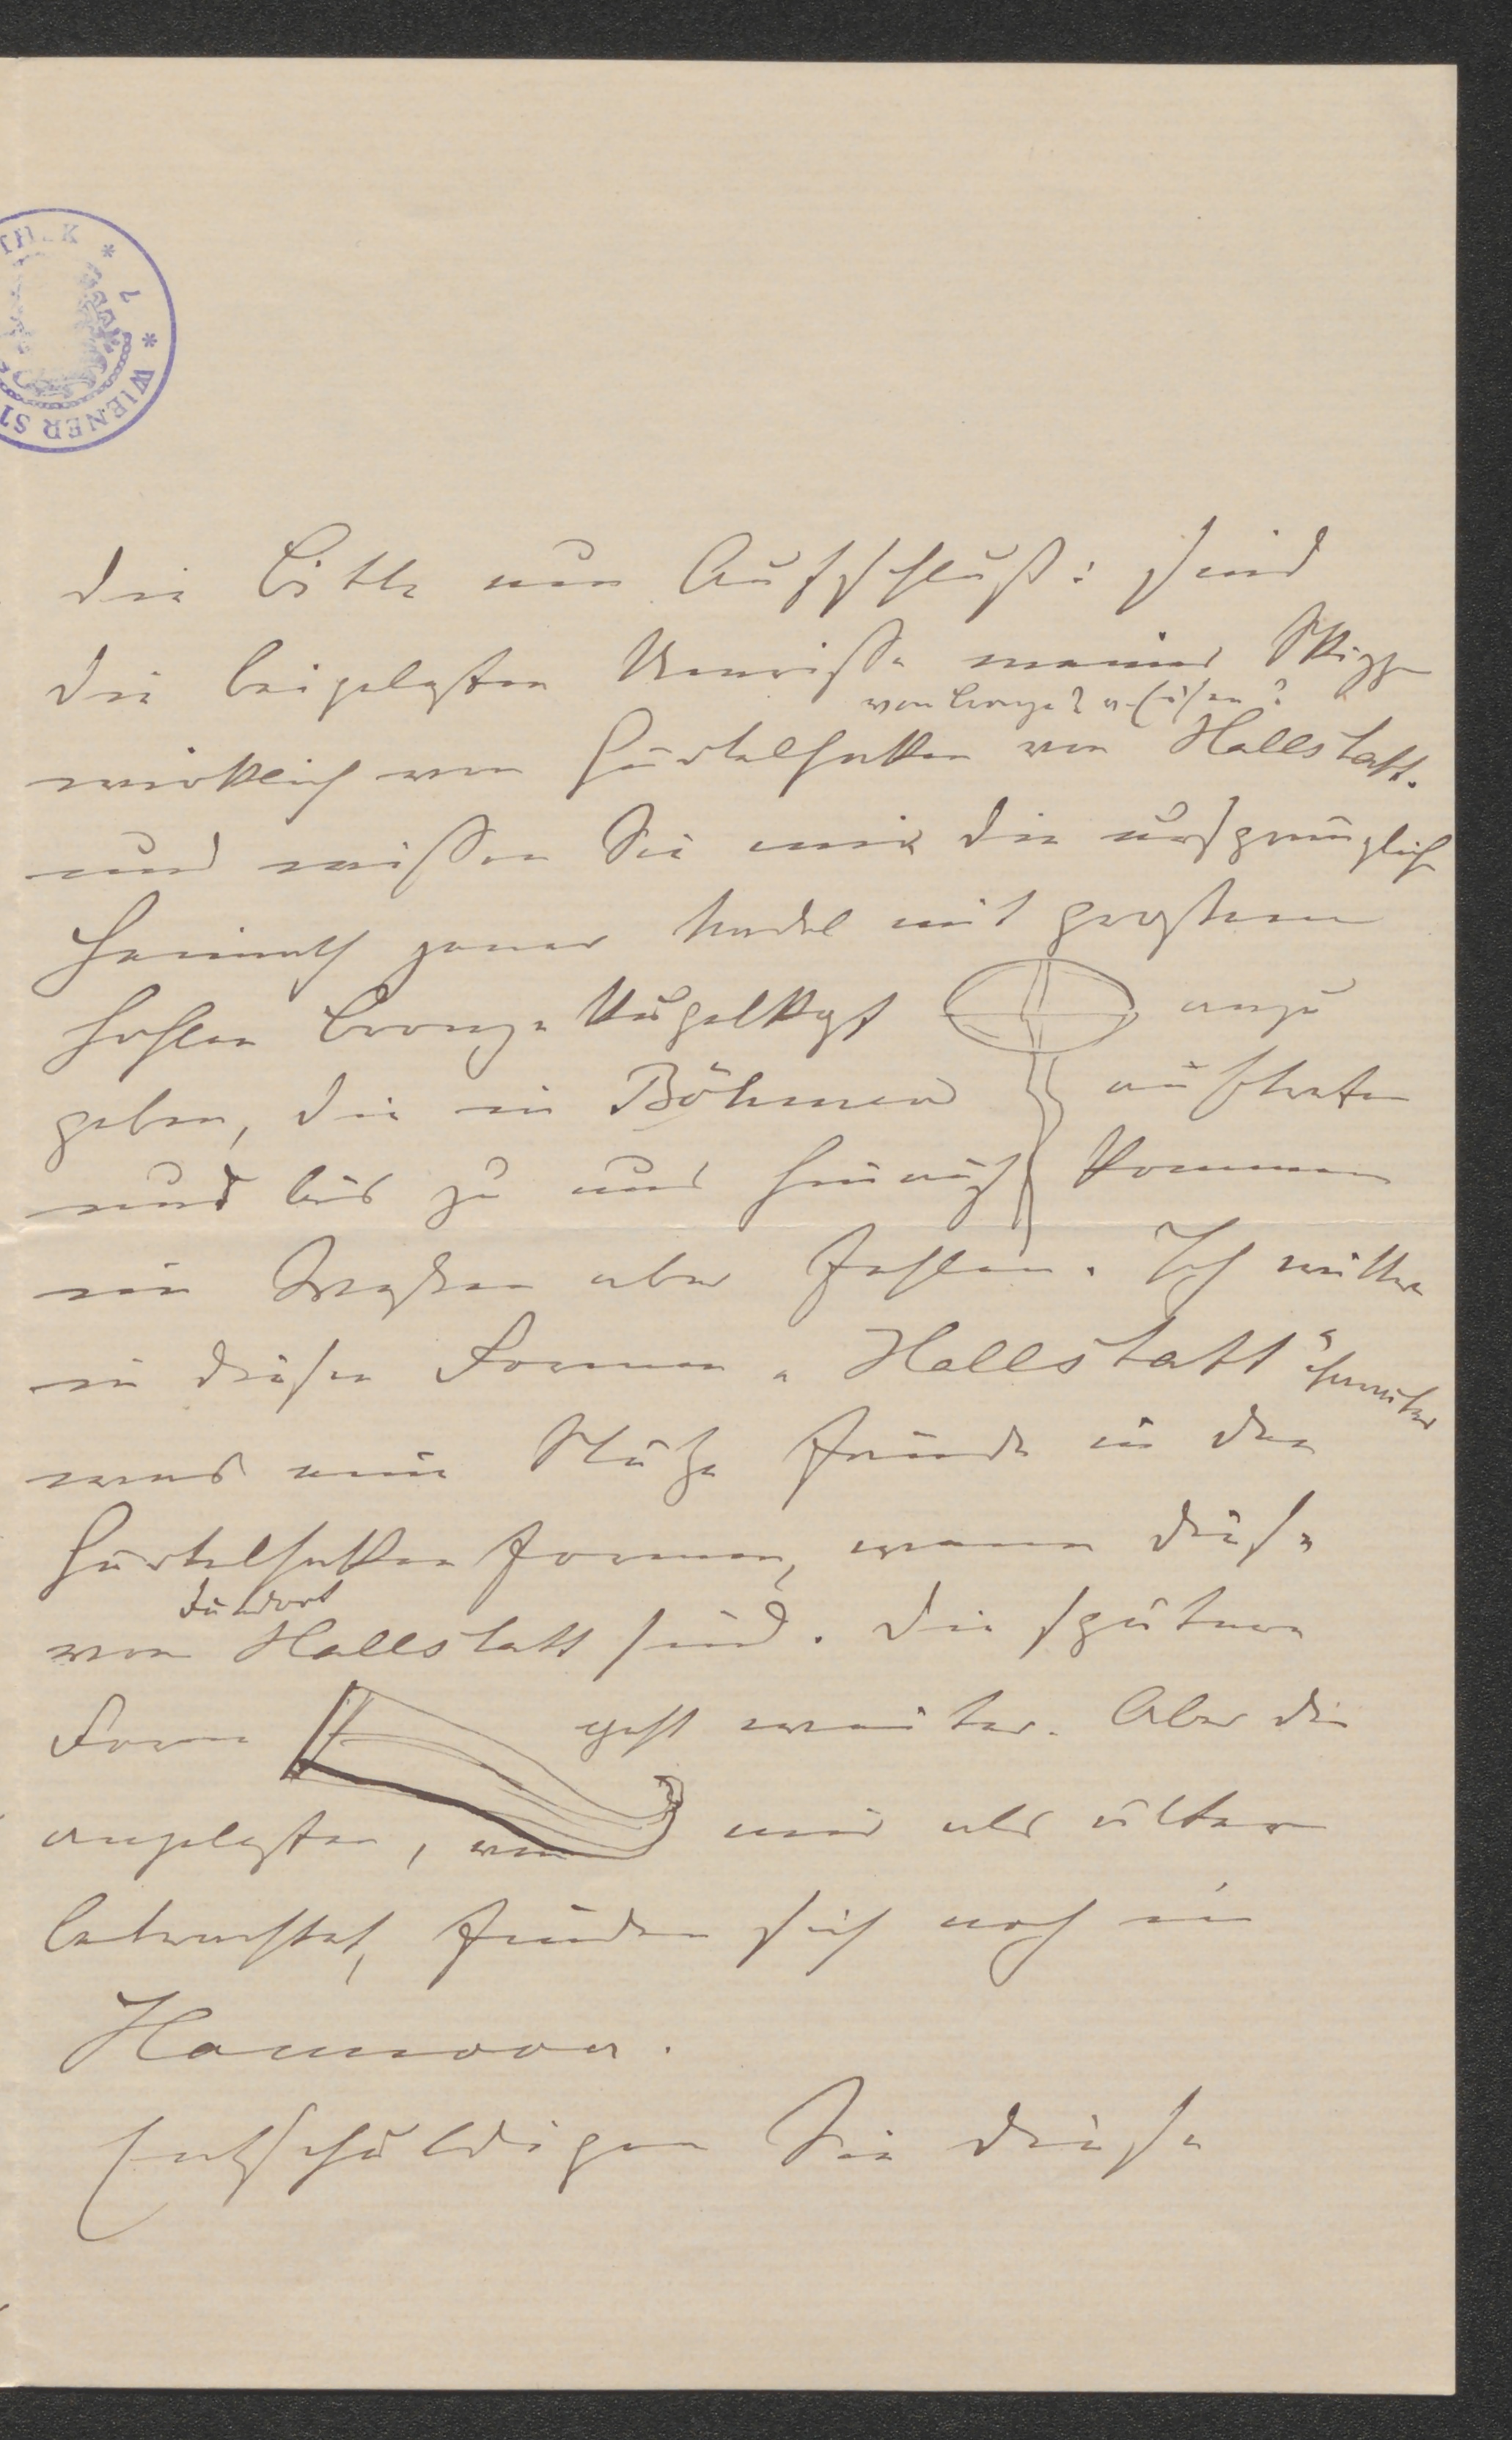 THEK * WIENER ST
die Bitte um Aufschluß: sind
die beigelegten Umrisse meiner Skizze
von Bronze? u Eisen?
wirklich von Gürtelhaken von Hallstatt.
und wissen Sie mir die ursprünglich
Heimath jener Nadel mit großem
hohlen Bronze Kugelkopf anzu
geben, die in Böhmen auftreten
und bis zu uns hinauf kommen
im Westen aber fehlen. Ich wittre
in diesen Formen „Hallstatt“
was eine Stütze fände in den
Gürtelhaken formen, wenn diese
von Hallstatt sind. Die spätere
Form geht weiter. Aber die
angelegten, von mir als älter
betrachtet, finden sich noch in
Hannover.
Entschuldigen Sie diese